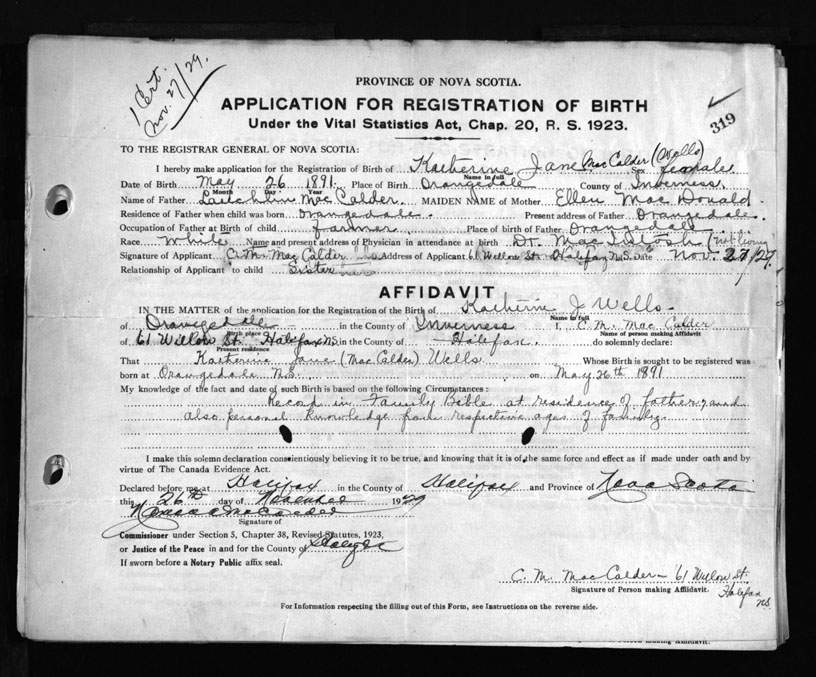 1 Cert.
Nov. 27/29.
PROVINCE OF NOVA SCOTIA.
APPLICATION FOR REGISTRATION OF BIRTH
Under the Vital Statistics Act, Chap. 20, R. S. 1923.
319
TO THE REGISTRAR GENERAL OF NOVA SCOTIA:
I hereby make application for the Registration of Birth of Katherine Jane MacCalder (Wells) Sex female
Name in full
Date of Birth May 26 1891. Place of Birth Orangedale County of Inverness.
Month Day Year
Name of Father Lauchlin MacCalder. MAIDEN NAME of Mother Ellen MacDonald
Residence of Father when child was born Orangedale. Present address of Father Orangedale.
Occupation of Father at Birth of child farmer Place of birth of Father Orangedale
Race White Name and present address of Physician in attendance at birth Dr. MacIntosh (not living
Signature of Applicant C. M. MacCalder Address of Applicant 61 Willow St. Halifax N.S. Date Nov. 27/29.
Relationship of Applicant to child Sister
AFFIDAVIT
IN THE MATTER of the application for the Registration of the Birth of Katherine J. Wells
Name in full
of Orangedale in the County of Inverness I, C. M. MacCalder
Birth place Name of person making Affidavit
of 61 Willow St. Halifax N.S. in the County of Halifax. do solemnly declare:
Present residence
That Katherine Jane (MacCalder) Wells Whose Birth is sought to be registered was
born at Orangedale N.S. on May 26th 1891
My knowledge of the fact and date of such Birth is based on the following Circumstances:
Record in Family Bible at residence of father, and
also personal knowledge from respective ages of family.
I make this solemn declaration conscientiously believing it to be true, and knowing that it is of the same force and effect as if made under oath and by
virtue of The Canada Evidence Act.
Declared before me at Halifax in the County of Halifax and Province of Nova Scotia
this 26th day of November 1929
Signature of
Commissioner under Section 5, Chapter 38, Revised Statutes, 1923,
or Justice of the Peace in and for the County of Halifax
If sworn before a Notary Public affix seal.
C. M. MacCalder - 61 Willow St.
Signature of Person making Affidavit. Halifax
N.S.
For Information respecting the filling out of this Form, see Instructions on the reverse side.